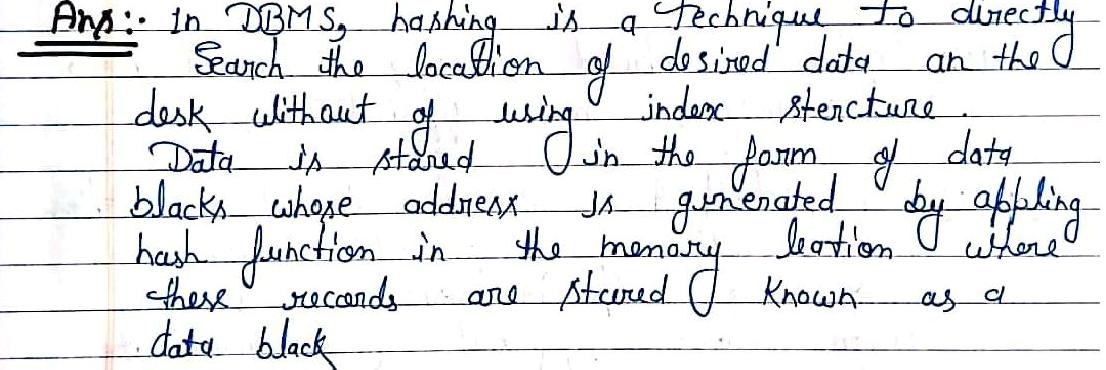 Ans:- In DBMS, hashing is a Technique to directly
Search the location of desired data an the
desk without of using index stercture.
Data is stared in the form of data
blacks whose address is generated by appling
hash function in the menary leation where
these records are stered known as a
data black